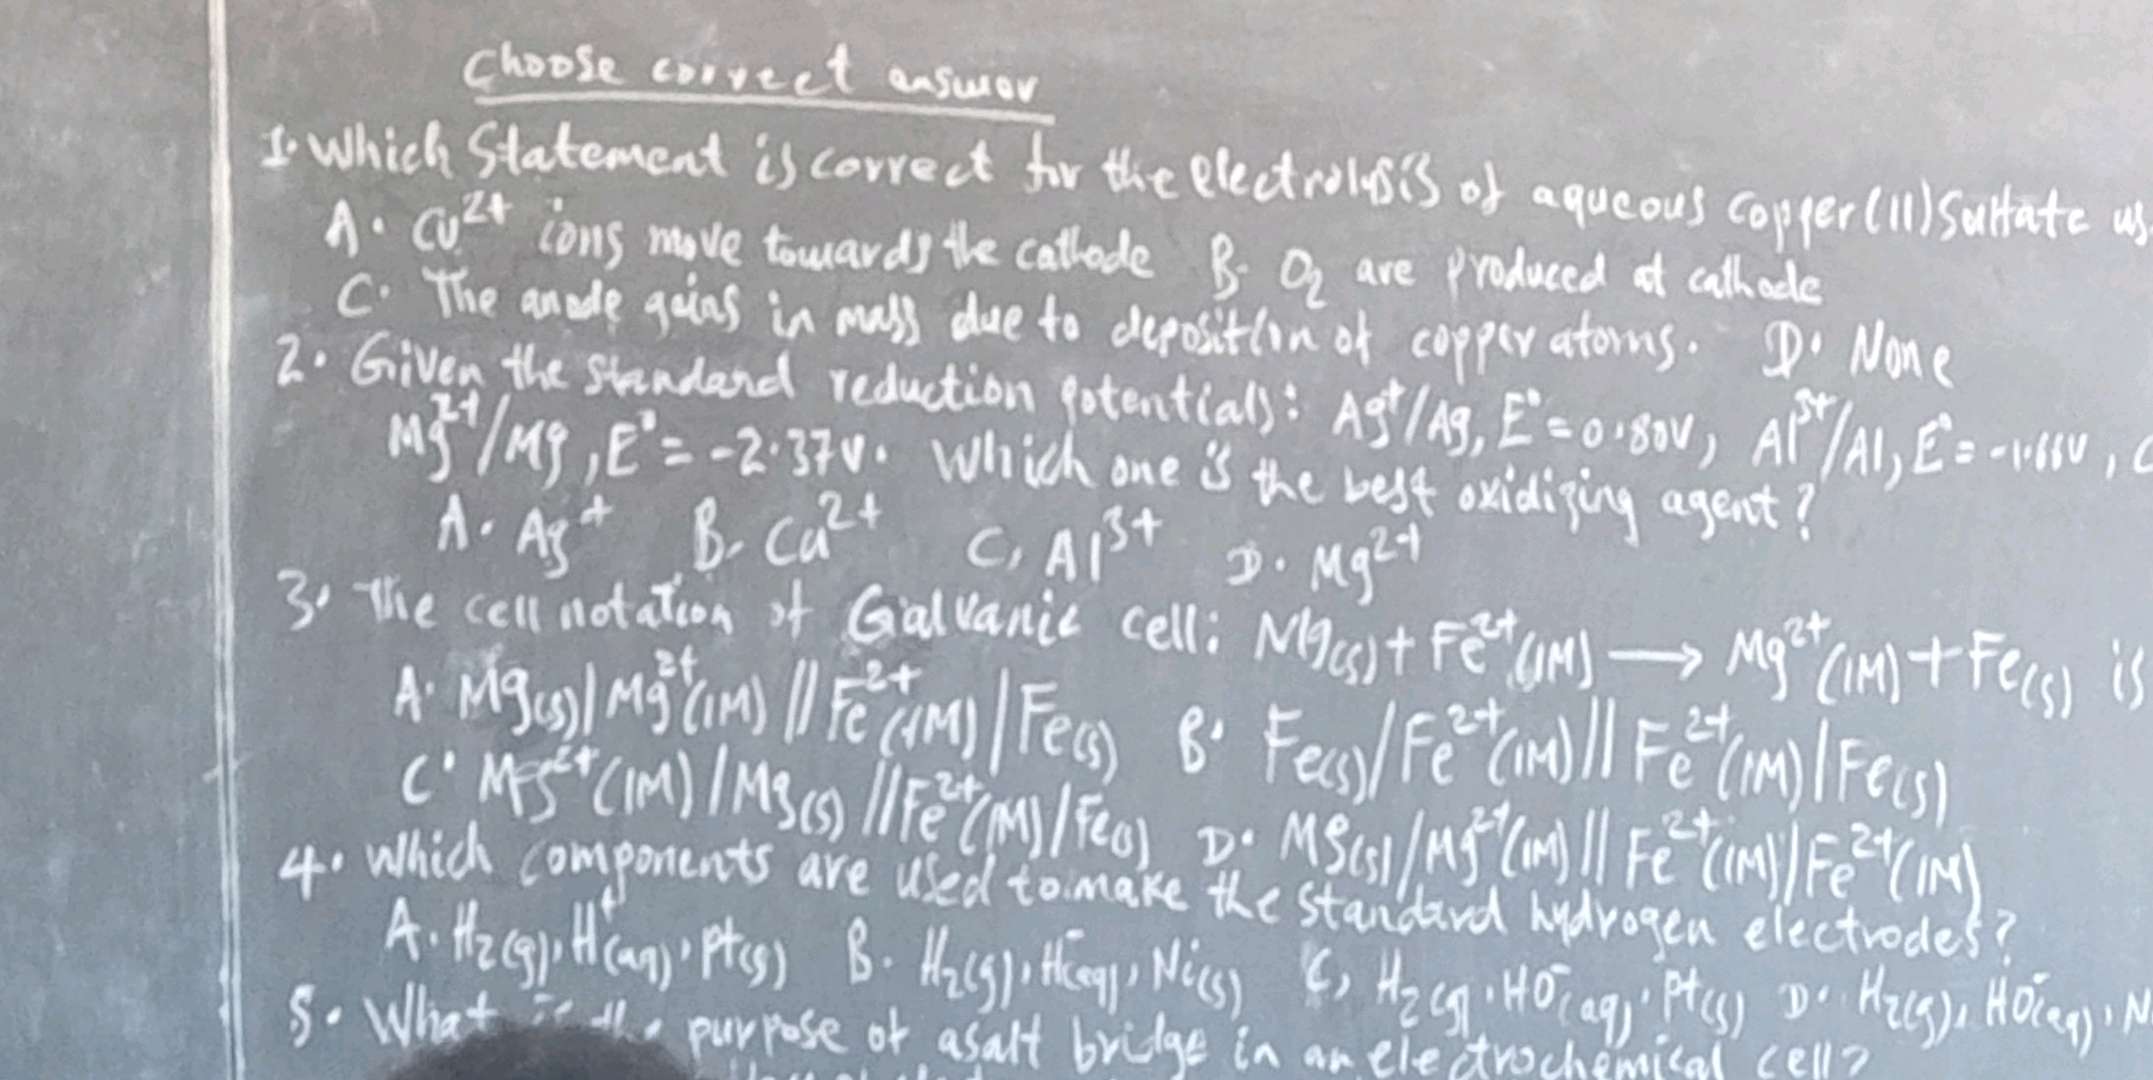 Choose correct answer
1. Which Statement is correct for the electrolysis of aqueous copper(II) Sulfate us
A. Cu²⁺ ions move towards the cathode B. O₂ are produced at cathode
C. The anode gains in mass due to deposition of copper atoms. D. None
2. Given the standard reduction potentials: Ag⁺/Ag, E°=0.80V, Al³⁺/Al, E°= -1.66V, C
Mg²⁺/Mg, E°= -2.37V. Which one is the best oxidizing agent?
A. Ag⁺ B. Ca²⁺ C, Al³⁺ D. Mg²⁺
3. The cell notation of Galvanic cell: Mg(s)+ Fe²⁺(1M) → Mg²⁺(1M)+Fe(s) is
A. Mg(s)|Mg²⁺(1M) || Fe²⁺(1M)|Fe(s) B. Fe(s)/Fe²⁺(1M)|| Fe²⁺(1M)|Fe(s)
C. Mg²⁺(1M)/Mg(s)||Fe²⁺(1M)/Fe(s) D. Mg(s)/Mg²⁺(1M)|| Fe²⁺(1M)/Fe²⁺(1M)
4. Which components are used to make the standard hydrogen electrodes?
A. H₂(g), H⁺(aq), Pt(s) B. H₂(g), H⁻(aq), Ni(s) C, H₂(g), HO⁻(aq), Pt(s) D. H₂(g), HO⁻(aq), N
5. What is the purpose of a salt bridge in an electrochemical cell?